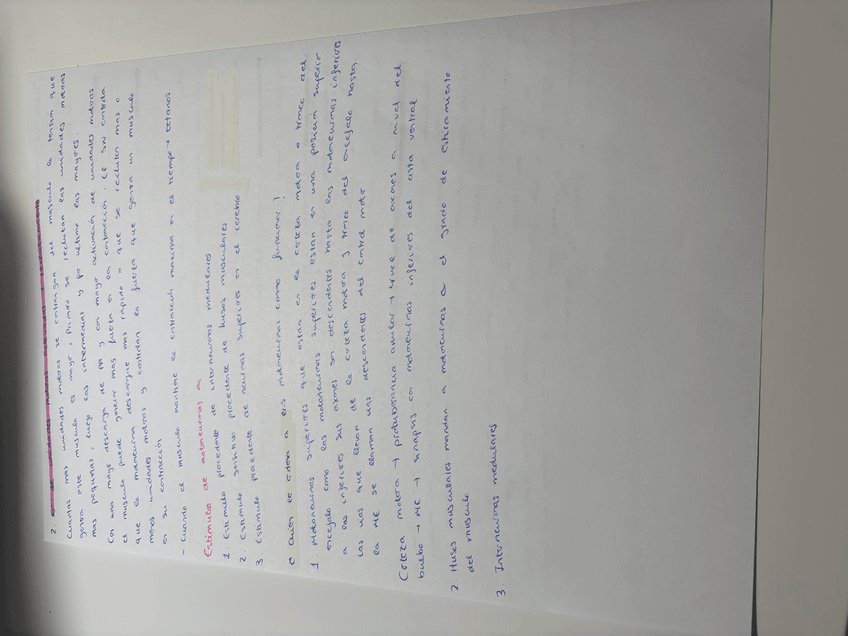 2.
Cuantas mas unidades motoras se contraigan del musculo la tensión que
genera este musculo es mayor. Primero se reclutan las unidades motoras
mas pequeñas, luego las intermedias y por ultimo las mayores.
Con una mayor descarga de PA y con mayor activación de unidades motoras
el musculo puede generar mas fuerza en la contracción. El SN controla
que la motoneurona descargue mas rapido o que se recluten mas o
menos unidades motoras y controlan la fuerza que genera un musculo
en su contracción
- Cuando el musculo mantiene la contracción maxima en el tiempo → tetanos
Estimulos de motoneuronas α
1. Estimulo procedente de interneuronas medulares
2. Estimulo sensitivo procedente de husos musculares
3. Estimulo procedente de neuronas superiores en el cerebro
¿ Quien le ordena a las motoneuronas como funcionar?
1. Motoneuronas superiores que estan en la corteza motora o tronco del
encefalo como las motoneuronas superiores estan en una posición superior
a las inferiores sus axones son descendentes hasta las motoneuronas inferiores
Las vias que llevan de la corteza motora y tronco del encefalo hasta
la ME se llaman vias descendentes del control motor
Corteza motora → protuberancia anular → cruce de axones a nivel del
bulbo → ME → sinapsis con motoneuronas inferiores del asta ventral
2. Husos musculares mandan a motoneuronas α el grado de estiramiento
del musculo
3. Interneuronas medulares